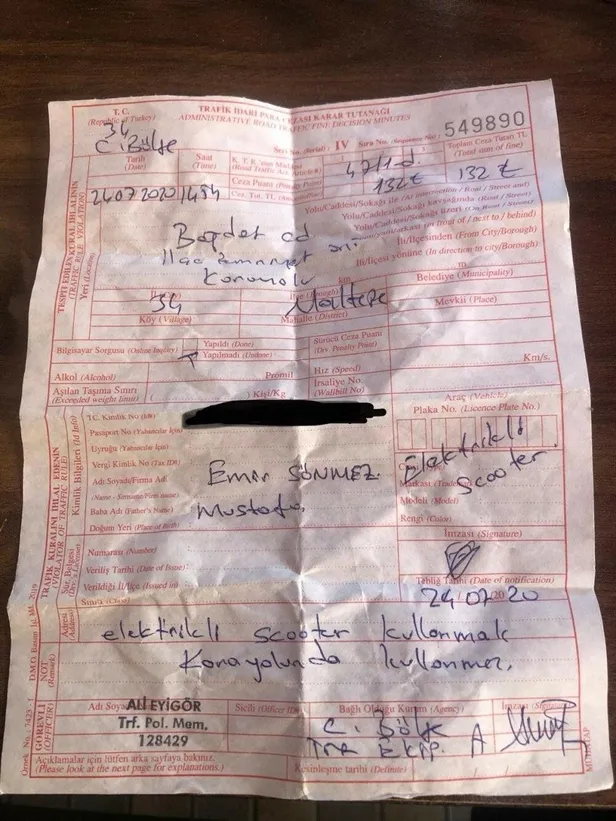 T. C.
(Republic of Turkey)
TRAFİK İDARİ PARA CEZASI KARAR TUTANAĞI
ADMINISTRATIVE ROAD TRAFFIC FINE DECISION MINUTES
34
C. Bölge
Seri No. (Serial) : IV Sıra No. (Sequence No) 549890
Tarihi
(Date)
Saat
(Time)
K. T. K. 'nun Maddesi
47/1-d
Toplam Ceza Tutarı TL
(Total sum of fine)
Ceza Puanı (Penalty Point)
Cez. Tut. TL
132 ₺
132 ₺
24 07 2020
TESPİT EDİLEN KURAL İHLALİNİN
(TRAFFIC RULE VIOLATION)
Yeri (Location)
Yolu/Caddesi/Sokağı ile (At intersection / Road / Street and)
Yolu/Caddesi/Sokağı kavşağında
Yolu/Caddesi/Sokağı üzeri
Bağdat cd
İli/İlçesinden (From City/Borough)
İli/İlçesi yönüne (In direction to city/Borough)
km
m.
34
Maltepe
Belediye (Municipality)
Köy (Village)
Mahalle (District)
Mevkii (Place)
Bilgisayar Sorgusu (Online Inquiry)
Yapıldı (Done)
Yapılmadı (Undone)
Sürücü Ceza Puanı
(Drv. Penalty Point)
Alkol (Alcohol)
Promil
Hız (Speed)
Km/s.
Aşılan Taşıma Sınırı
(Exceeded weight limit)
Kişi/Kg
İrsaliye No.
(Wallbill No)
TRAFİK KURALINI İHLAL EDENİN
(VIOLATOR OF TRAFFIC RULE)
Kimlik Bilgileri (Id Info)
T.C. Kimlik No (ID#)
Pasaport No (Yabancılar İçin)
Uyruğu (Yabancılar İçin)
Vergi Kimlik No (Tax ID#)
Adı Soyadı/Firma Adı
(Name - Surname/Firm name)
Emir SÖNMEZ
Baba Adı (Father's Name)
Mustafa
Doğum Yeri (Place of Birth)
Araç (Vehicle)
Plaka No. (Licence Plate No.)
Elektrikli
Scooter
Markası
Modeli (Model)
Rengi (Color)
İmzası (Signature)
Sür. Belgesi
Numarası (Number)
Veriliş Tarihi (Date of Issue)
Verildiği İl/İlçe (Issued in)
Sınıfı (Class)
Tebliğ Tarihi (Date of notification)
24/07/2020
Adresi
(Address)
NOT
(Remark)
elektrikli scooter kullanmak
Karayolunda kullanmaz.
GÖREVLİ
(OFFICER)
Adı Soyadı
ALİ EYİGÖR
Trf. Pol. Mem.
128429
Sicili (Officer ID#)
Bağlı Olduğu Kurum (Agency)
C. Bölge
A
İmzası (Signature)
Açıklamalar için lütfen arka sayfaya bakınız.
(Please look at the next page for explanations.)
Kesinleşme tarihi (Definite